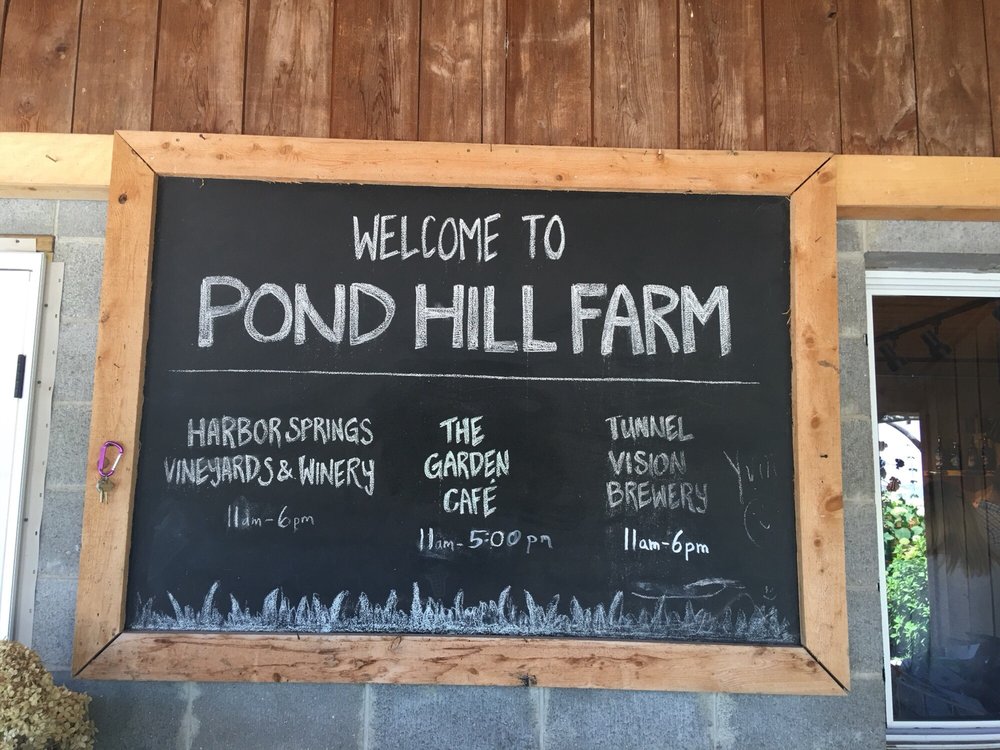 WELCOME TO
POND HILL FARM
HARBOR SPRINGS
VINEYARDS & WINERY
11am-6pm
THE
GARDEN
CAFÉ
11am-5:00 pm
TUNNEL
VISION
BREWERY
11am-6pm